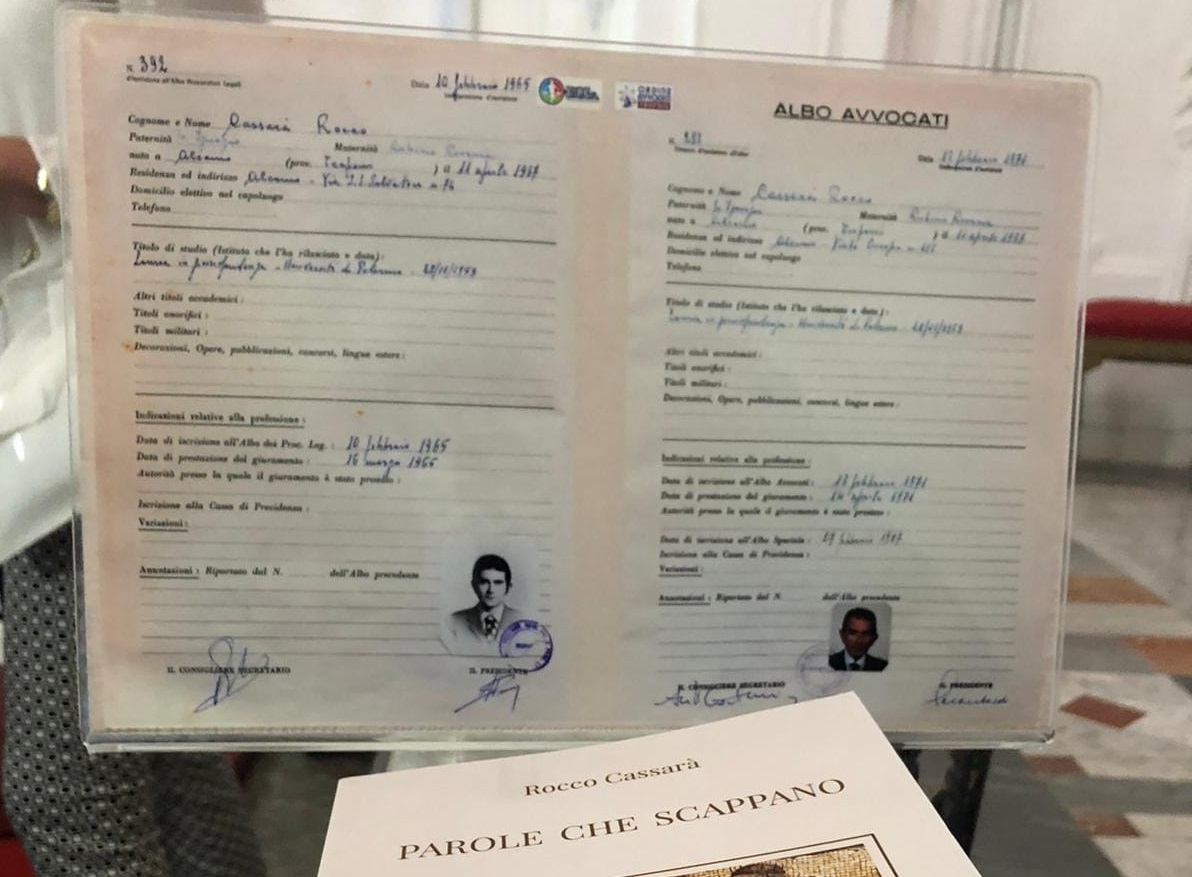 N. 392
d'iscrizione all'Albo Procuratori Legali
Data 10 febbraio 1965
Cognome e Nome Cassarà Rocco
Paternità fu
Maternità
nato a Alcamo (prov. Trapani ) il 11 aprile
Residenza ed indirizzo Alcamo - Via SS. Salvatore n 76
Domicilio elettivo nel capoluogo
Telefono
Titolo di studio (Istituto che l'ha rilasciato e data):
Laurea in giurisprudenza - Università di Palermo -
Altri titoli accademici :
Titoli onorifici :
Titoli militari :
Decorazioni, Opere, pubblicazioni, concorsi, lingue estere :
Indicazioni relative alla professione :
Data di iscrizione all'Albo dei Proc. Leg. : 10 febbraio 1965
Data di prestazione del giuramento : 16 marzo 1965
Autorità presso la quale il giuramento è stato prestato :
Iscrizione alla Cassa di Previdenza :
Variazioni :
Annotazioni : Riportato dal N. dell'Albo precedente
IL CONSIGLIERE SEGRETARIO
IL PRESIDENTE
ORDINE
AVVOCATI
TRAPANI
ALBO AVVOCATI
N.
Data febbraio 1971
Cognome e Nome Cassarà Rocco
Paternità fu
Maternità
nato a Alcamo (prov. Trapani ) il 11 aprile
Residenza ed indirizzo Alcamo Viale Europa
Domicilio elettivo nel capoluogo
Telefono
Titolo di studio (Istituto che l'ha rilasciato e data) :
Laurea in giurisprudenza - Università di Palermo -
Altri titoli accademici :
Titoli onorifici :
Titoli militari :
Decorazioni, Opere, pubblicazioni, concorsi, lingue estere :
Indicazioni relative alla professione :
Data di iscrizione all'Albo Avvocati : febbraio 1971
Data di prestazione del giuramento : aprile 1971
Autorità presso la quale il giuramento è stato prestato :
Data di iscrizione all'Albo Speciale : febbraio
Iscrizione alla Cassa di Previdenza :
Variazioni :
Annotazioni : Riportato dal N. dell'Albo precedente
IL CONSIGLIERE SEGRETARIO
IL PRESIDENTE
Rocco Cassarà
PAROLE CHE SCAPPANO